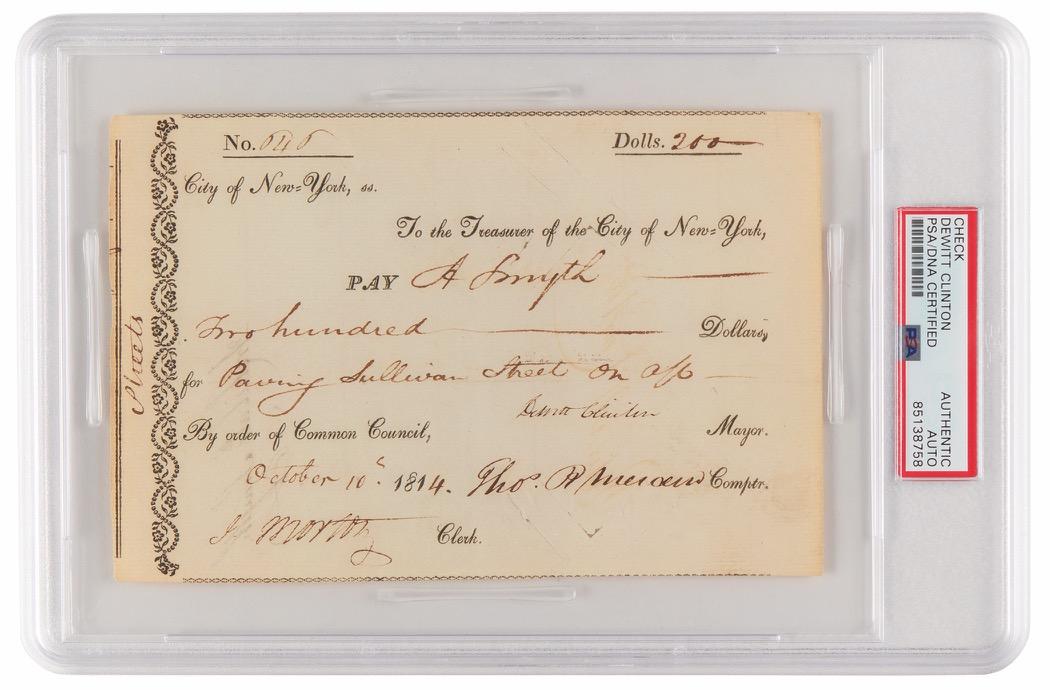 No. 646
Dolls. 200
City of New=York, ss.
To the Treasurer of the City of New=York,
PAY A Smyth
Two hundred Dollars,
for Paving Sullivan Street on a/c
DeWitt Clinton Mayor.
By order of Common Council,
October 10th 1814. Thos. R Mercein Comptr.
J. Morton Clerk.
Streets
CHECK
DEWITT CLINTON
PSA/DNA CERTIFIED
PSA
AUTHENTIC
AUTO
85138758